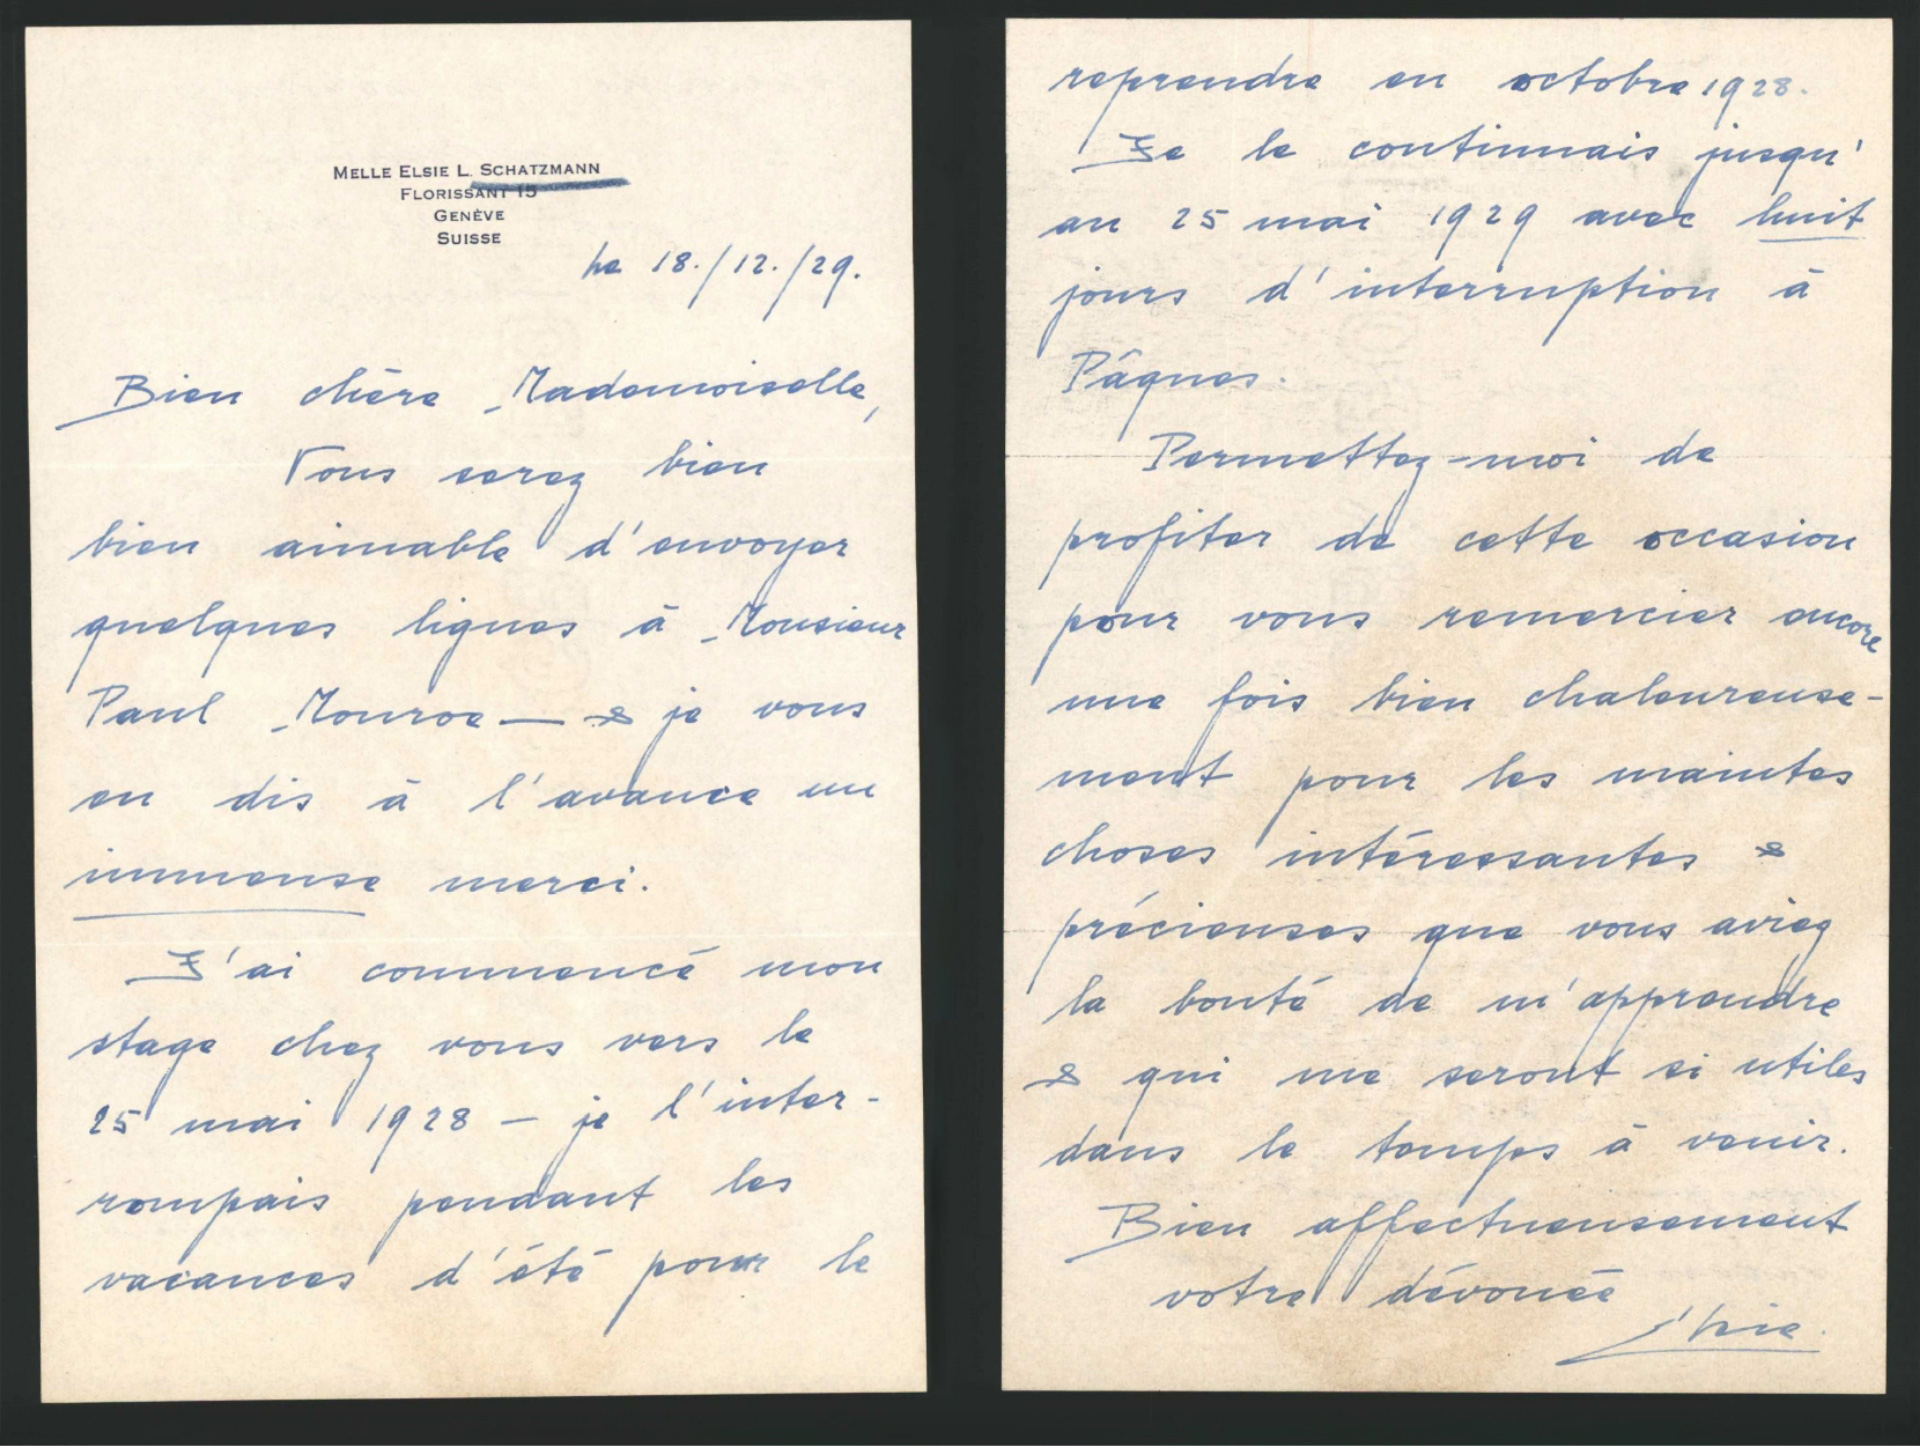 MELLE ELSIE L. SCHATZMANN
FLORISSANT 15
GENÈVE
SUISSE
le 18./12./29.
Bien chère Mademoiselle,
Vous serez bien
bien aimable d'envoyer
quelques lignes à Monsieur
Paul Monroe — & je vous
en dis à l'avance un
immense merci.
J'ai commencé mon
stage chez vous vers le
25 mai 1928 — je l'inter-
rompais pendant les
vacances d'été pour le
reprendre en octobre 1928.
Je le continuais jusqu'
au 25 mai 1929 avec huit
jours d'interruption à
Pâques.
Permettez-moi de
profiter de cette occasion
pour vous remercier encore
une fois bien chaleureuse-
ment pour les maintes
choses intéressantes &
précieuses que vous aviez
la bonté de m'apprendre
& qui me seront si utiles
dans le temps à venir.
Bien affectueusement
votre dévouée
Elsie.